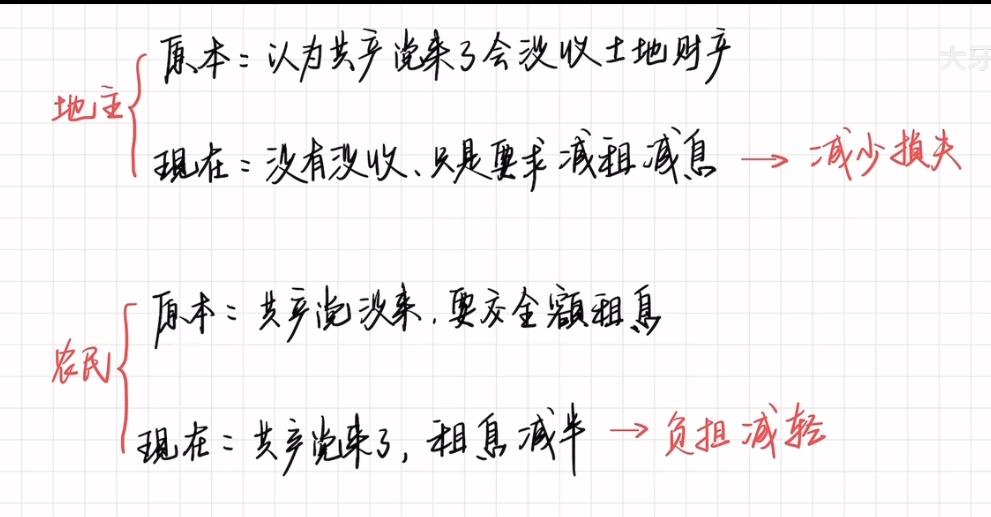 大牙
原本：认为共产党来了会没收土地财产
地主
现在：没有没收、只是要求减租减息 → 减少损失
原本：共产党没来，要交全额租息
农民
现在：共产党来了，租息减半 → 负担减轻